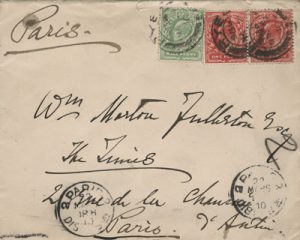 Paris.
Wm Morton Fullerton Esq
The Times
2 Rue de la Chaussée
d'Antin
Paris
PARIS